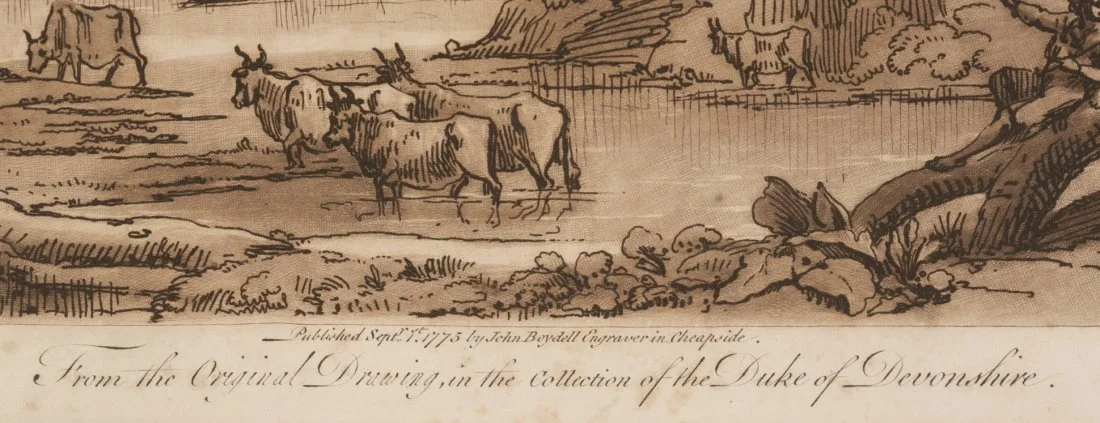 Published Septr. 1st. 1775 by John Boydell Engraver in Cheapside.
From the Original Drawing, in the Collection of the Duke of Devonshire.